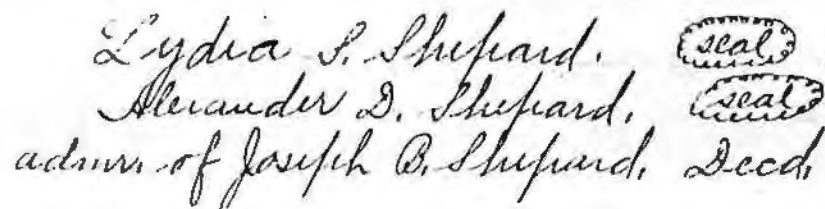 Lydia S. Shepard. seal
Alexander D. Shepard. seal
admr. of Joseph B. Shepard, Decd.